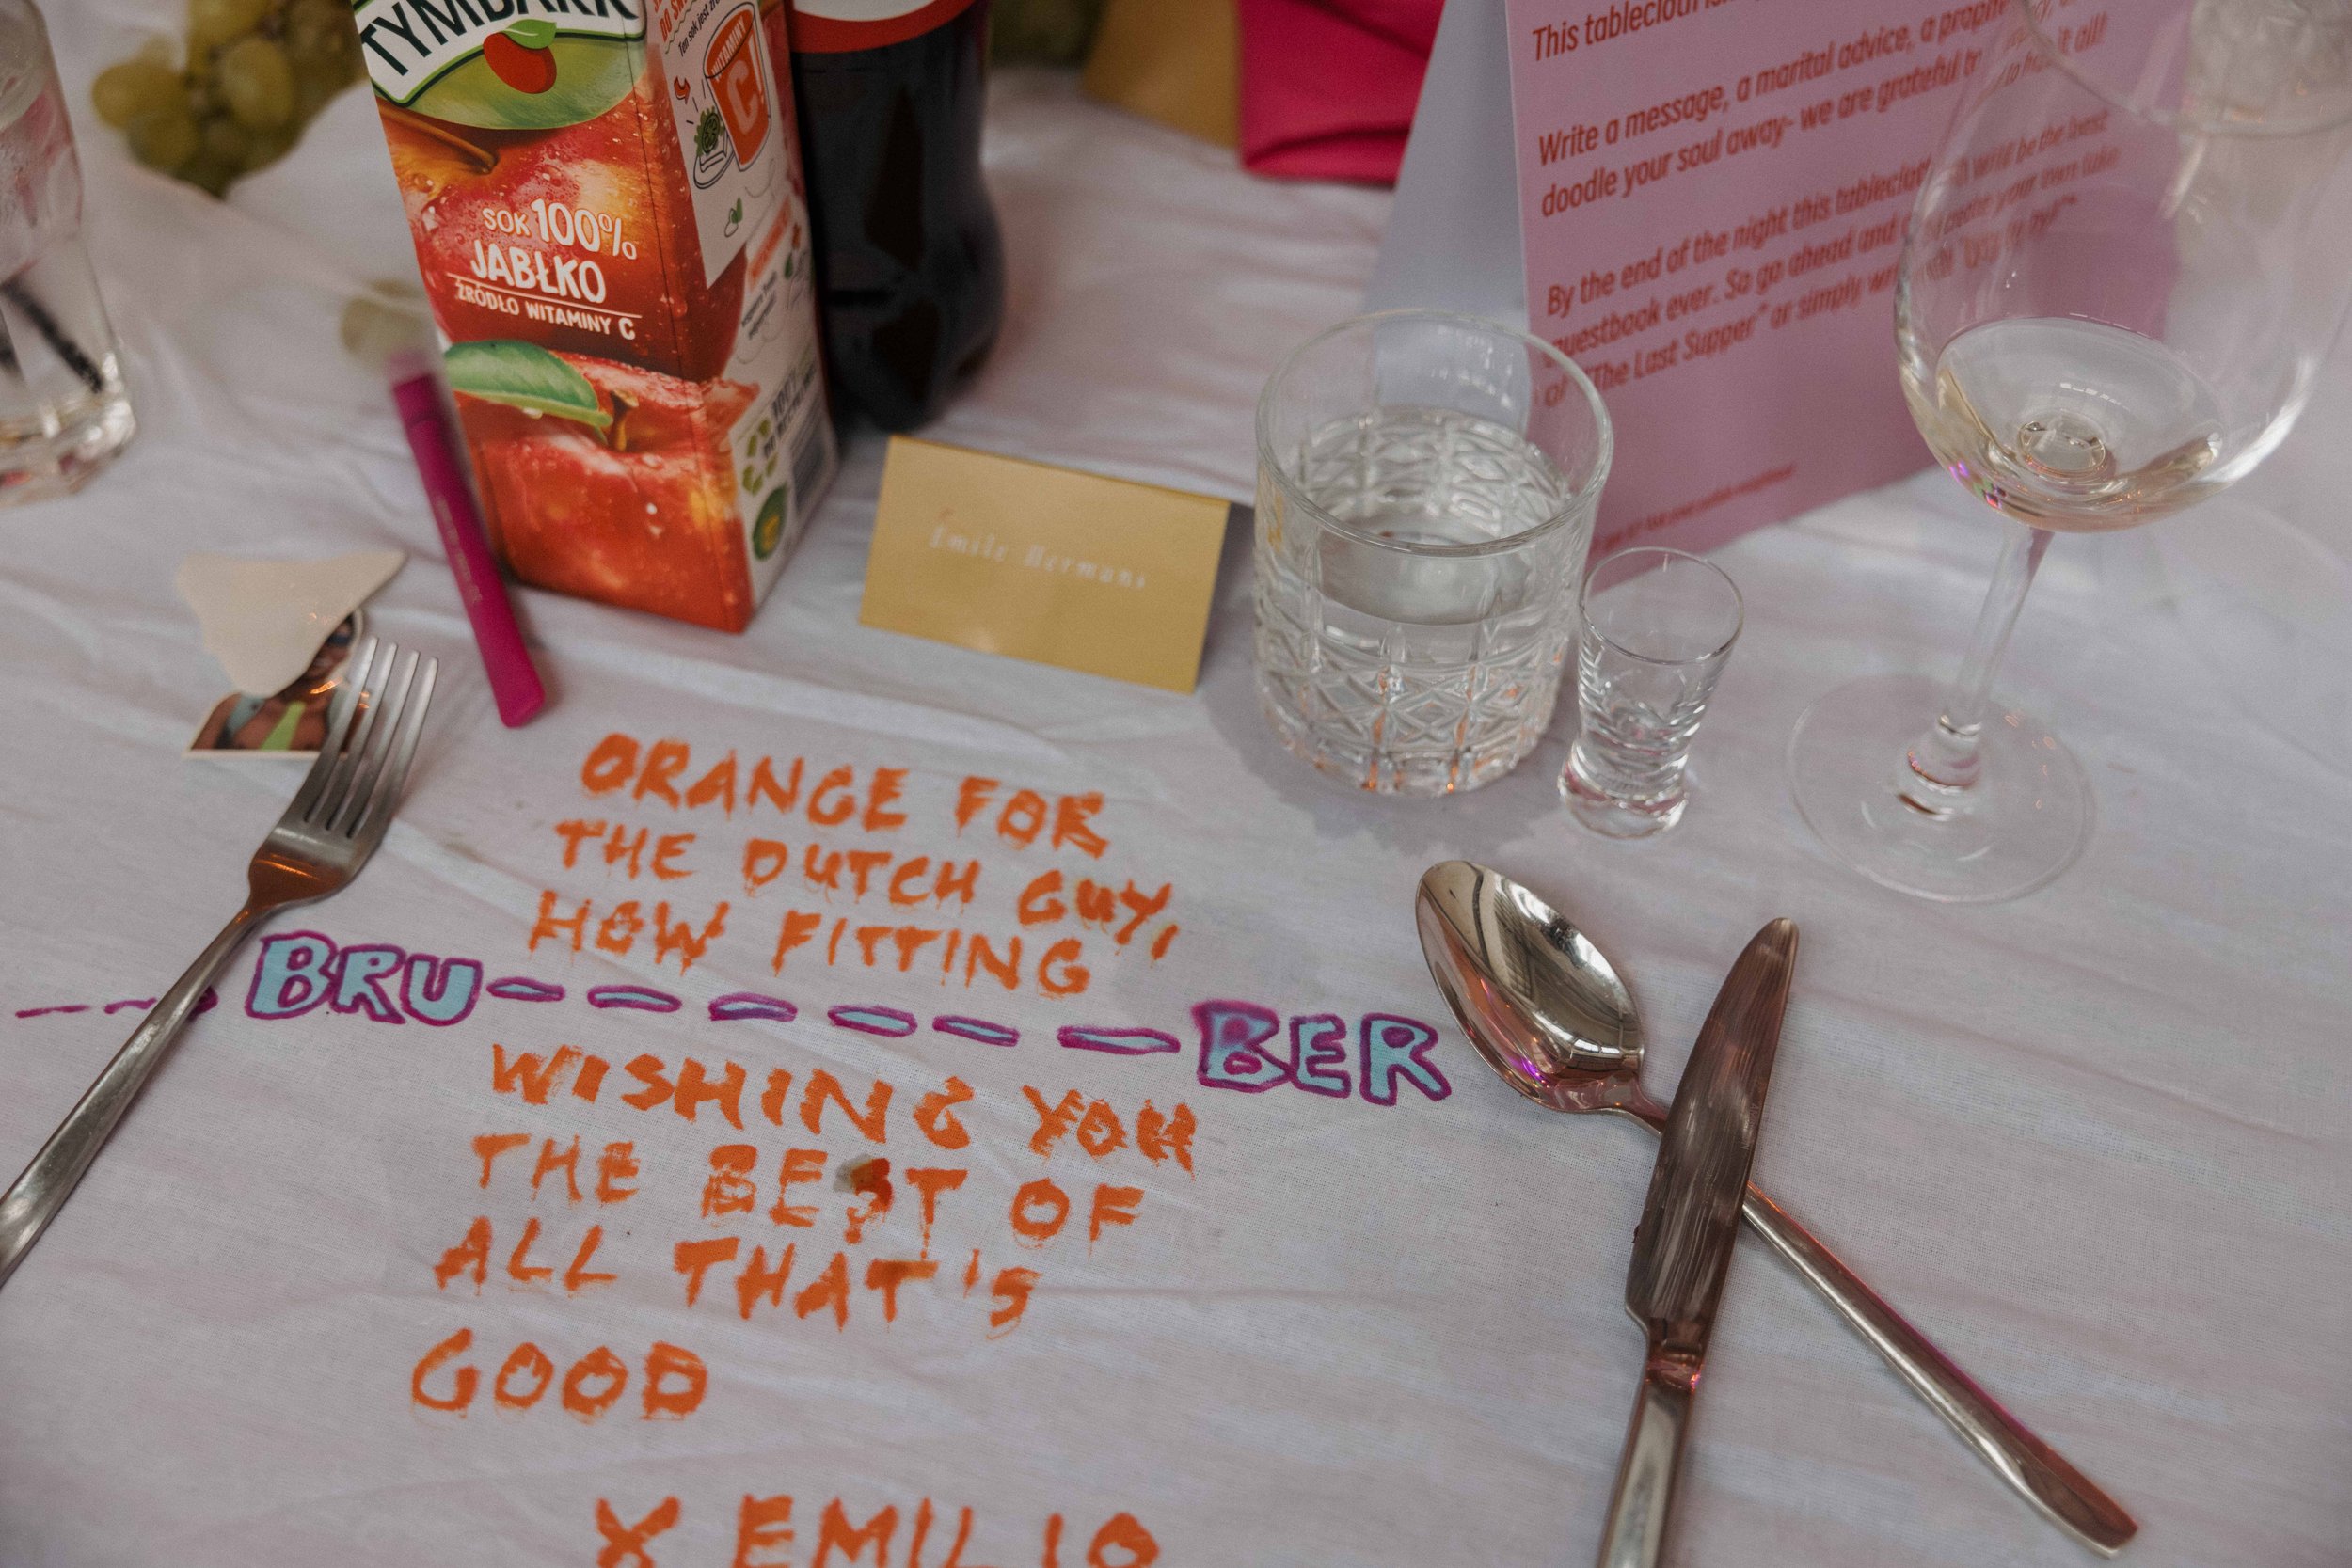 TYMBARK
SOK 100%
JABŁKO
ŹRÓDŁO WITAMINY C
WITAMINY
C
This tablecloth
Write a message, a marital advice, a
doodle your soul away- we are grateful to it all!
By the end of the night this tablecloth will be the best
guestbook ever. So go ahead and your own take
of "The Last Supper" or simply
Émile Hermans
ORANGE FOR
THE DUTCH GUY,
HOW FITTING
BRU------BER
WISHING YOU
THE BEST OF
ALL THAT'S
GOOD
X EMILIO